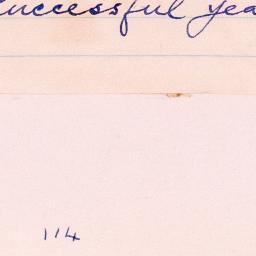 successful yea
114